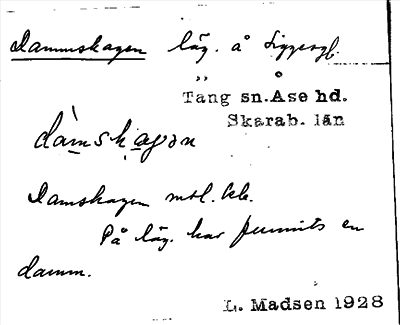 Dammskagen läg. å Siggesgb.
Tang sn. Åse hd.
Skarab. län
dàmskagən
Damskagen mtl. kb.
På läg. har funnits en
damm.
L. Madsen 1928